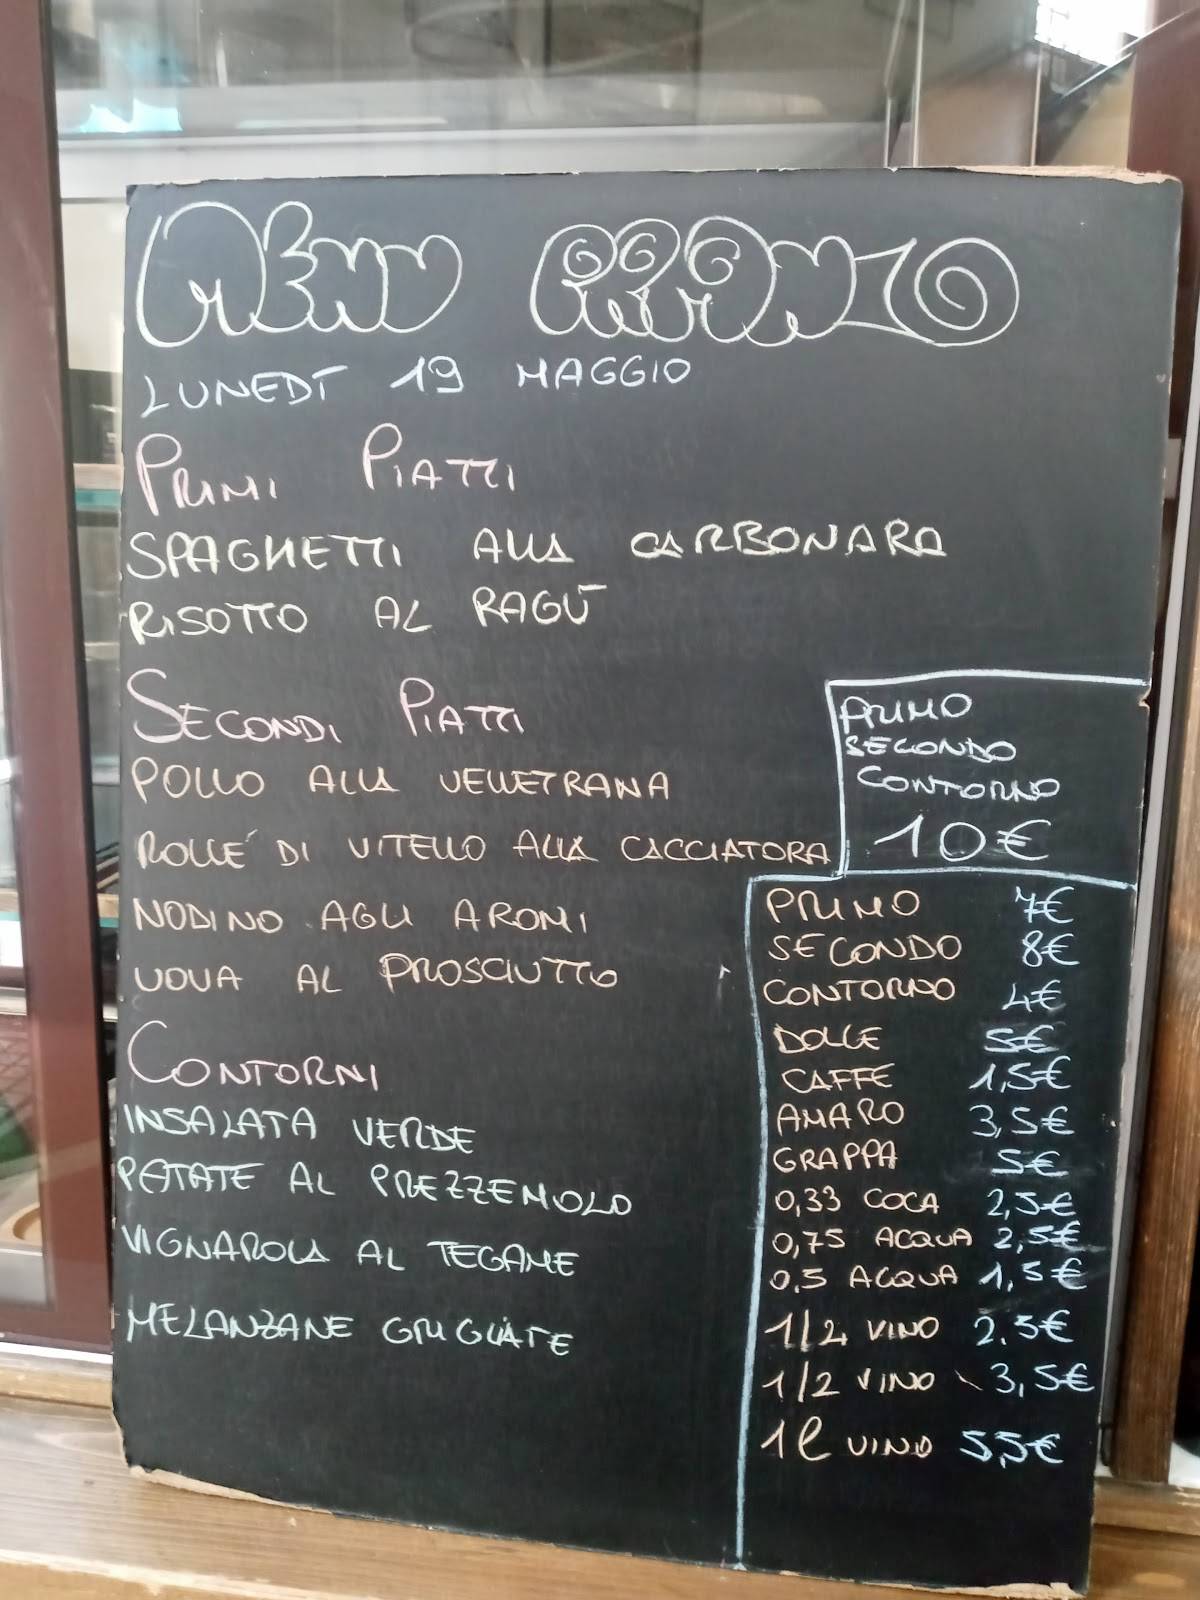 MENU PRANZO
LUNEDÌ 19 MAGGIO
PRIMI PIATTI
SPAGHETTI ALLA CARBONARA
RISOTTO AL RAGÙ
SECONDI PIATTI
POLLO ALLA VELLETRANA
ROLLÉ DI VITELLO ALLA CACCIATORA
NODINO AGLI AROMI
UOVA AL PROSCIUTTO
CONTORNI
INSALATA VERDE
PATATE AL PREZZEMOLO
VIGNAROLA AL TEGAME
MELANZANE GRIGLIATE
PRIMO
SECONDO
CONTORNO
10€
PRIMO 7€
SECONDO 8€
CONTORNO 4€
DOLCE 5€
CAFFE 1,5€
AMARO 3,5€
GRAPPA 5€
0,33 COCA 2,5€
0,75 ACQUA 2,5€
0,5 ACQUA 1,5€
1/4 VINO 2,5€
1/2 VINO 3,5€
1l VINO 5,5€